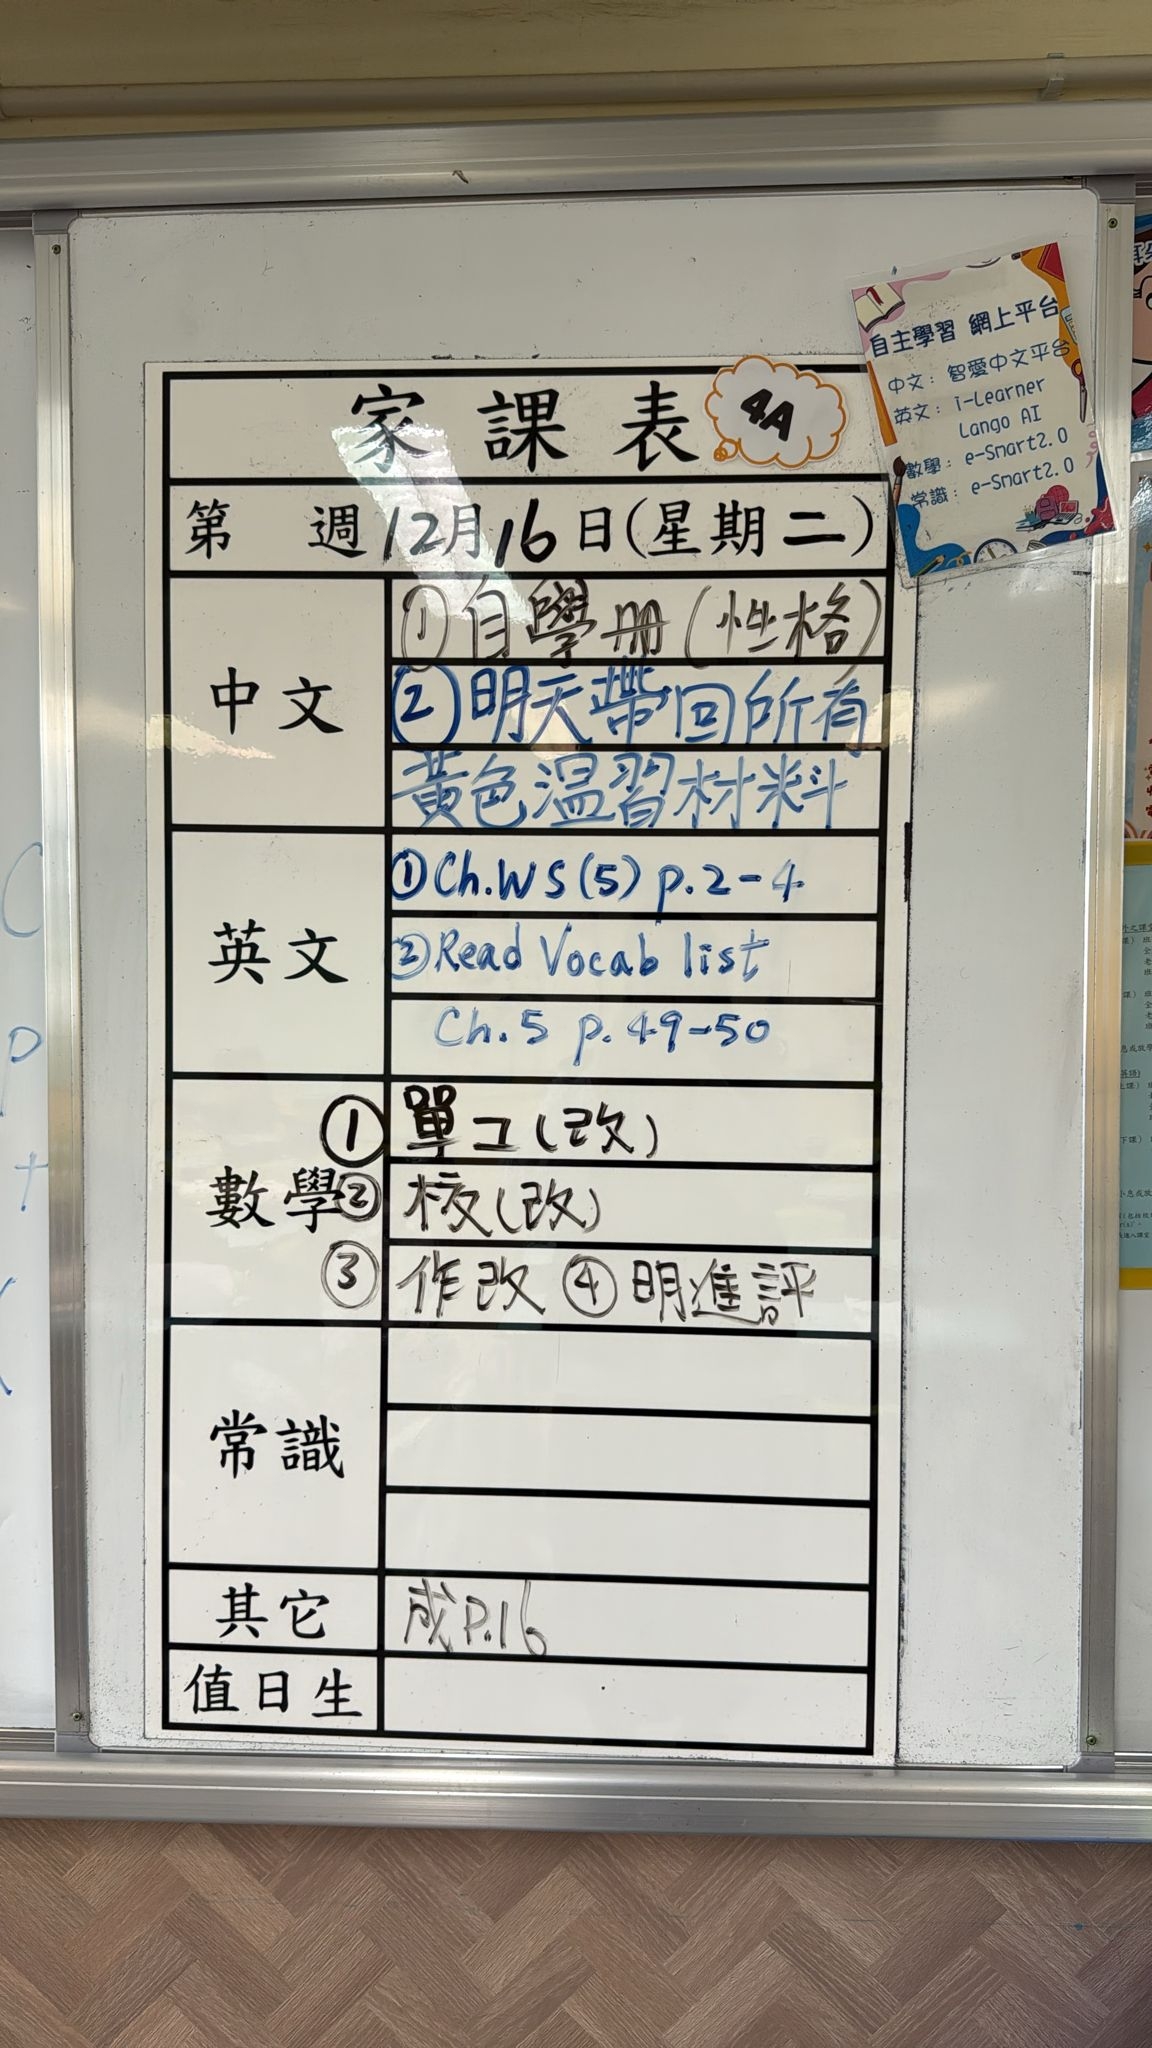 自主學習 網上平台
中文：智愛中文平台
英文：i-Learner
Lango AI
數學：e-Smart2.0
常識：e-Smart2.0
家課表 4A
第 週 12月16日(星期二)
中文
①自學冊(性格)
②明天帶回所有
黃色温習材料
英文
①Ch.WS(5) p.2-4
②Read Vocab list
Ch.5 p.49-50
數學
① 單工(改)
② 核(改)
③ 作改 ④ 明進評
常識
其它
成P.16
值日生